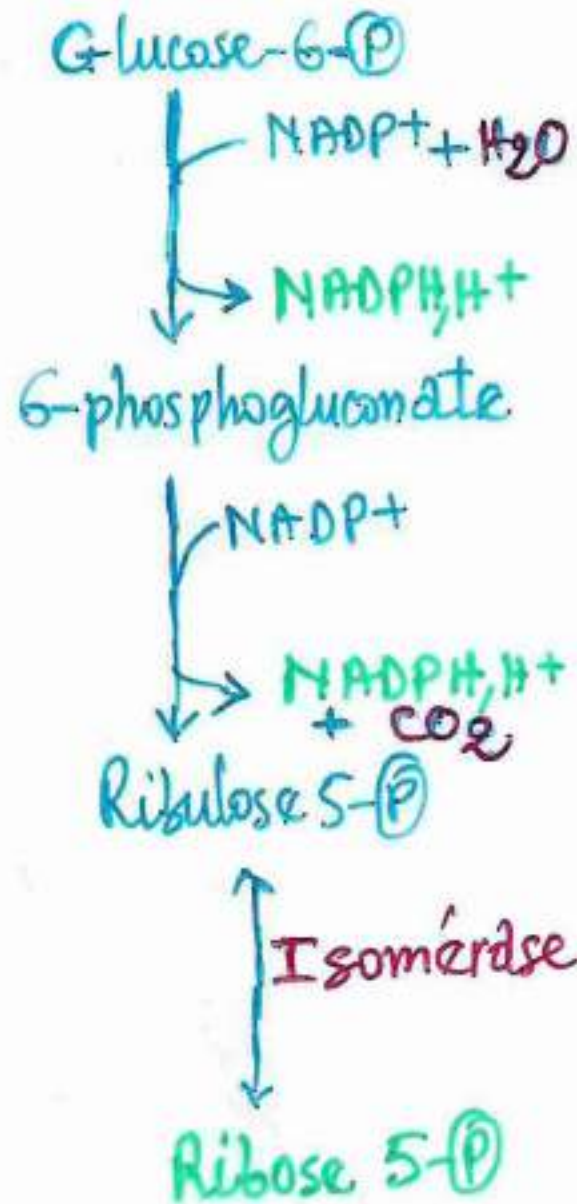 Glucose-6-Ⓟ
NADP+ + H2O
NADPH,H+
6-phosphogluconate
NADP+
NADPH,H+
+ CO2
Ribulose 5-Ⓟ
Isomérase
Ribose 5-Ⓟ